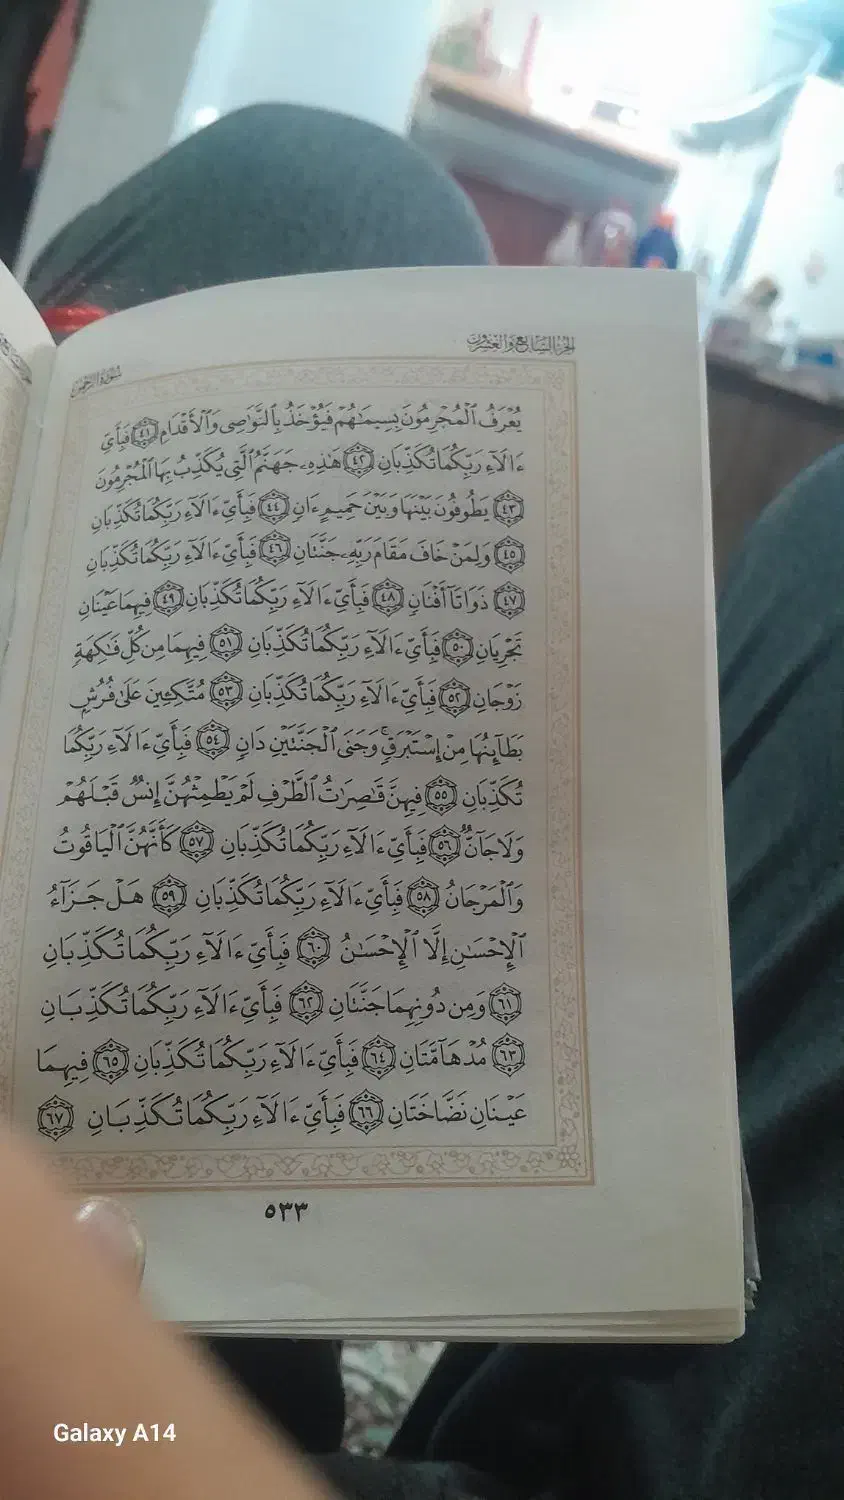 الجزء السابع والعشرون
سورة الرحمن
يُعْرَفُ ٱلْمُجْرِمُونَ بِسِيمَٰهُمْ فَيُؤْخَذُ بِٱلنَّوَٰصِى وَٱلْأَقْدَامِ ٤١ فَبِأَىِّ
ءَالَآءِ رَبِّكُمَا تُكَذِّبَانِ ٤٢ هَٰذِهِۦ جَهَنَّمُ ٱلَّتِى يُكَذِّبُ بِهَا ٱلْمُجْرِمُونَ
٤٣ يَطُوفُونَ بَيْنَهَا وَبَيْنَ حَمِيمٍ ءَانٍ ٤٤ فَبِأَىِّ ءَالَآءِ رَبِّكُمَا تُكَذِّبَانِ
٤٥ وَلِمَنْ خَافَ مَقَامَ رَبِّهِۦ جَنَّتَانِ ٤٦ فَبِأَىِّ ءَالَآءِ رَبِّكُمَا تُكَذِّبَانِ
٤٧ ذَوَاتَآ أَفْنَانٍ ٤٨ فَبِأَىِّ ءَالَآءِ رَبِّكُمَا تُكَذِّبَانِ ٤٩ فِيهِمَا عَيْنَانِ
تَجْرِيَانِ ٥٠ فَبِأَىِّ ءَالَآءِ رَبِّكُمَا تُكَذِّبَانِ ٥١ فِيهِمَا مِن كُلِّ فَٰكِهَةٍ
زَوْجَانِ ٥٢ فَبِأَىِّ ءَالَآءِ رَبِّكُمَا تُكَذِّبَانِ ٥٣ مُتَّكِـِٔينَ عَلَىٰ فُرُشٍۭ
بَطَآئِنُهَا مِنْ إِسْتَبْرَقٍۚ وَجَنَى ٱلْجَنَّتَيْنِ دَانٍ ٥٤ فَبِأَىِّ ءَالَآءِ رَبِّكُمَا
تُكَذِّبَانِ ٥٥ فِيهِنَّ قَٰصِرَٰتُ ٱلطَّرْفِ لَمْ يَطْمِثْهُنَّ إِنسٌ قَبْلَهُمْ
وَلَا جَآنٌّ ٥٦ فَبِأَىِّ ءَالَآءِ رَبِّكُمَا تُكَذِّبَانِ ٥٧ كَأَنَّهُنَّ ٱلْيَاقُوتُ
وَٱلْمَرْجَانُ ٥٨ فَبِأَىِّ ءَالَآءِ رَبِّكُمَا تُكَذِّبَانِ ٥٩ هَلْ جَزَآءُ
ٱلْإِحْسَٰنِ إِلَّا ٱلْإِحْسَٰنُ ٦٠ فَبِأَىِّ ءَالَآءِ رَبِّكُمَا تُكَذِّبَانِ
٦١ وَمِن دُونِهِمَا جَنَّتَانِ ٦٢ فَبِأَىِّ ءَالَآءِ رَبِّكُمَا تُكَذِّبَانِ
٦٣ مُدْهَآمَّتَانِ ٦٤ فَبِأَىِّ ءَالَآءِ رَبِّكُمَا تُكَذِّبَانِ ٦٥ فِيهِمَا
عَيْنَانِ نَضَّاخَتَانِ ٦٦ فَبِأَىِّ ءَالَآءِ رَبِّكُمَا تُكَذِّبَانِ ٦٧
٥٣٣
Galaxy A14